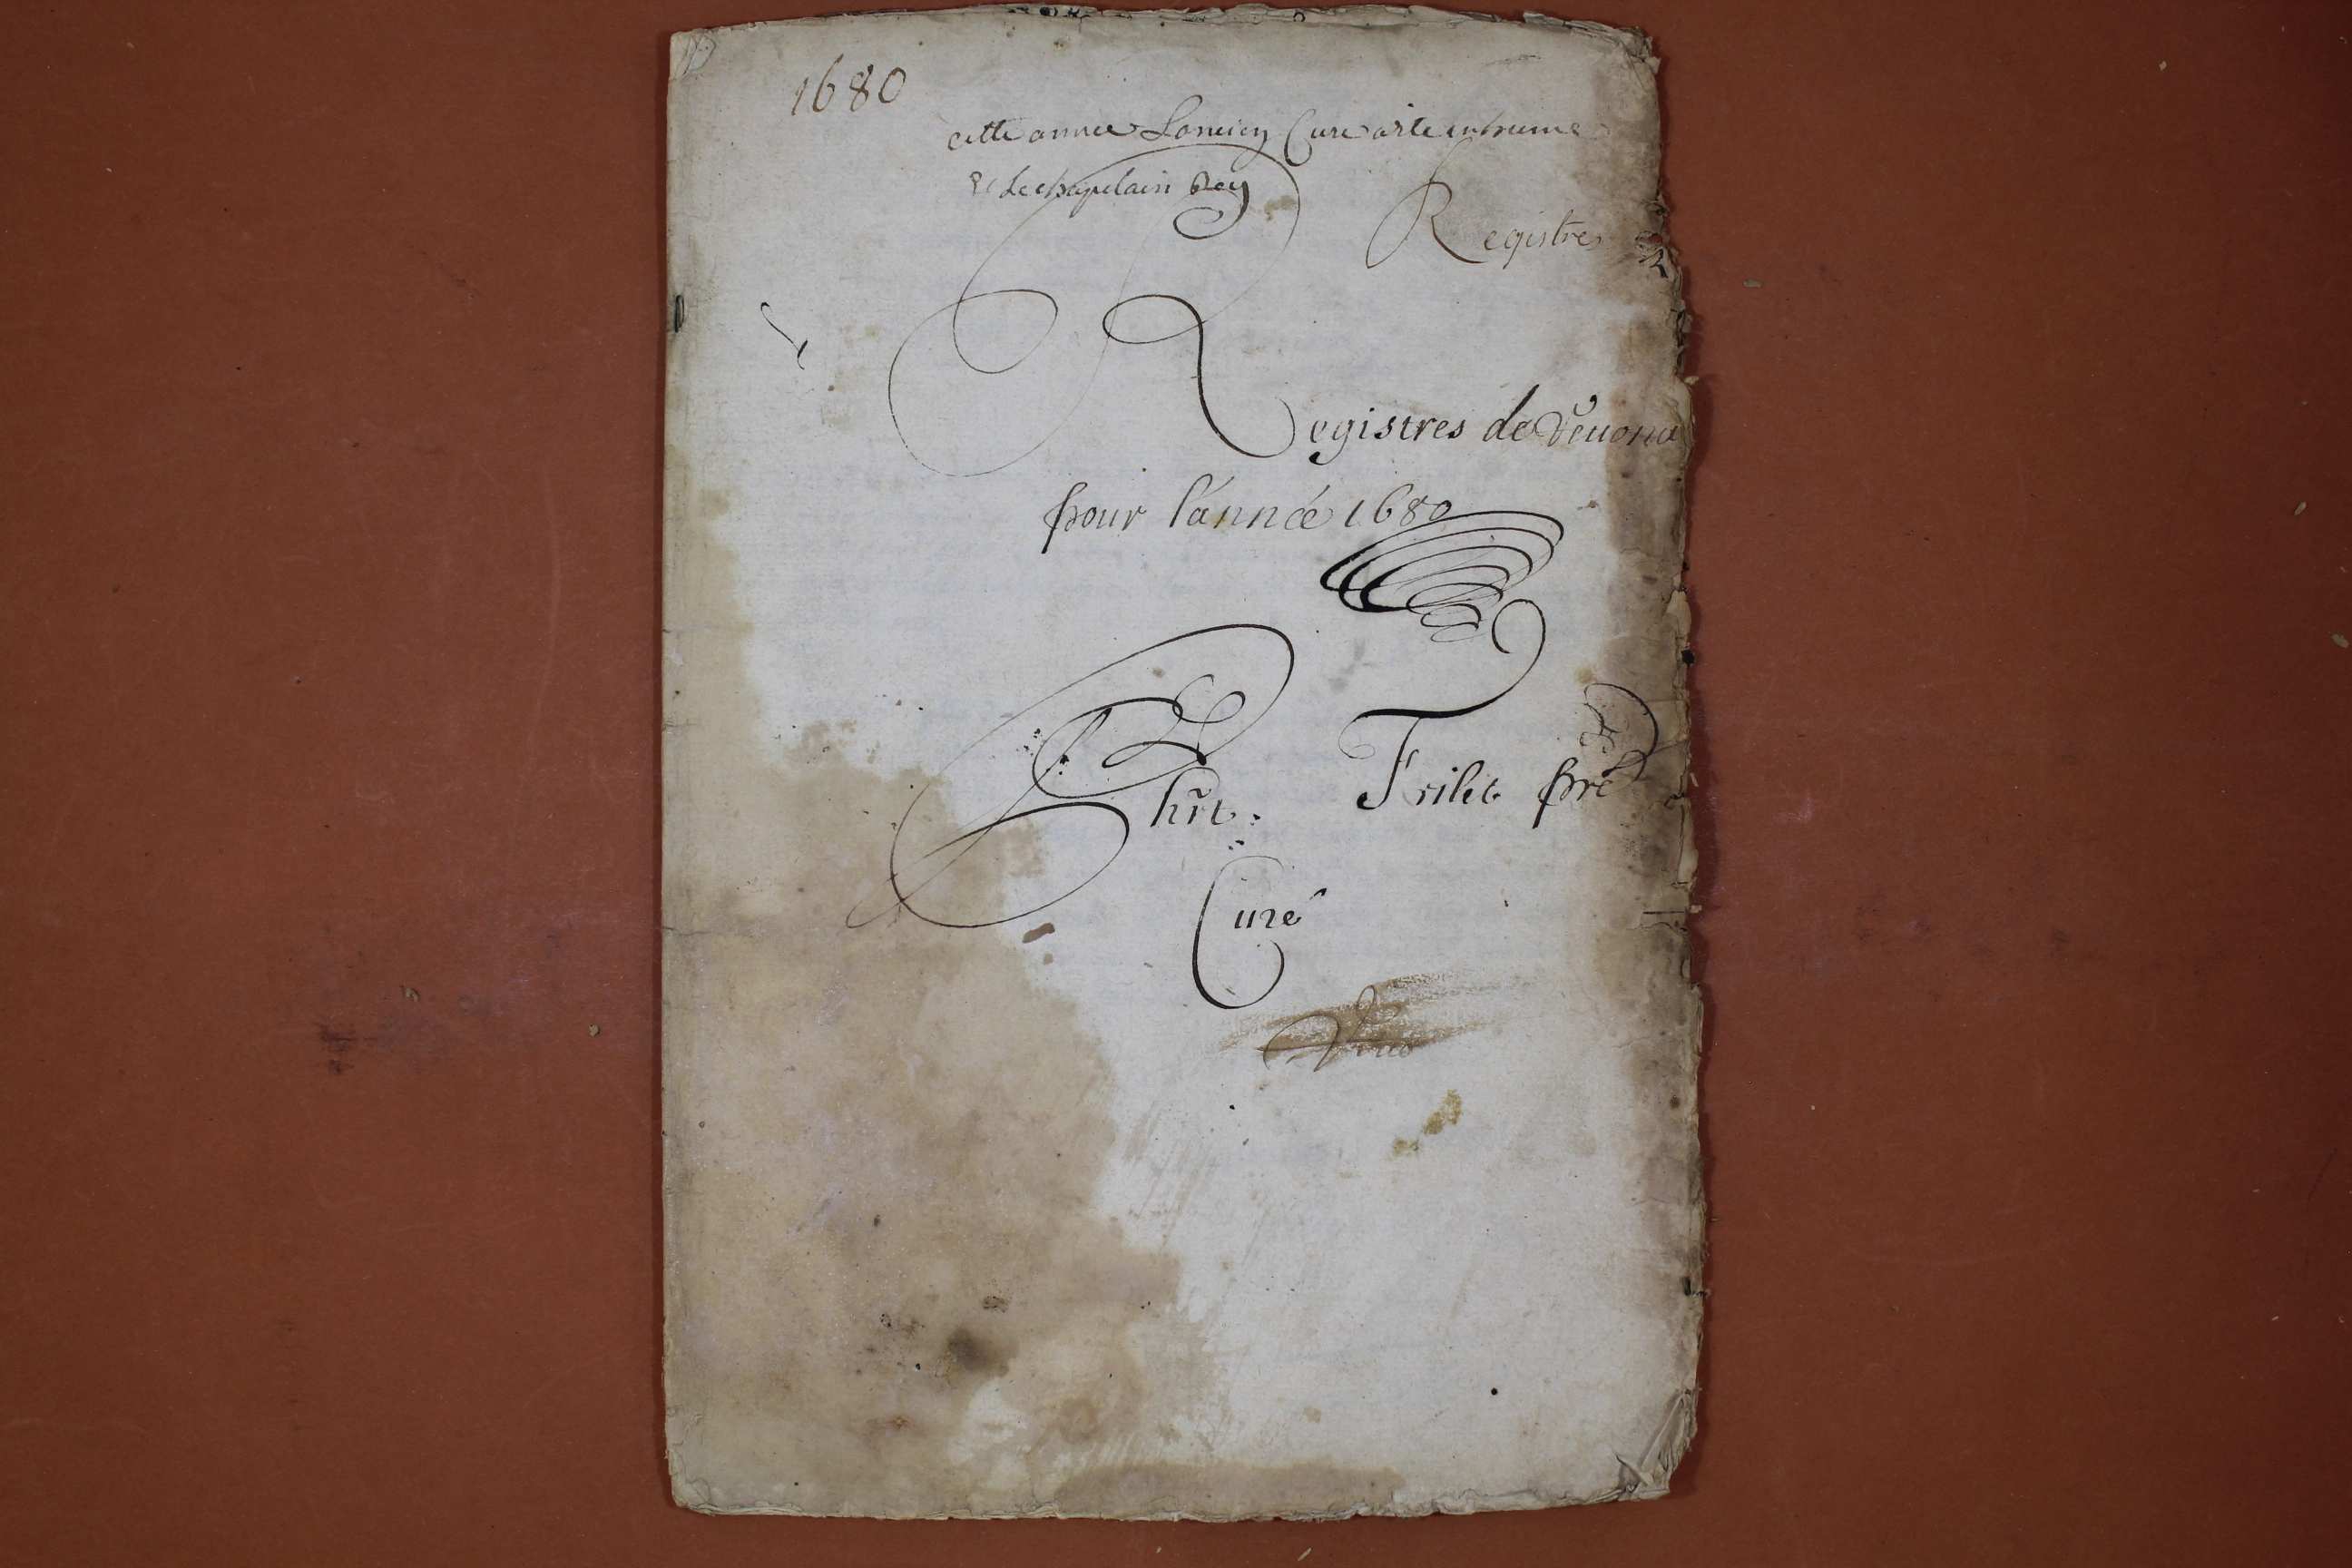 1680
cette annee Lancien Curé a ete inhumé
et le chapelain Rey
Registres
Registres de Veuona
pour l'année 1680
Chrt. Frilet pre
Curé